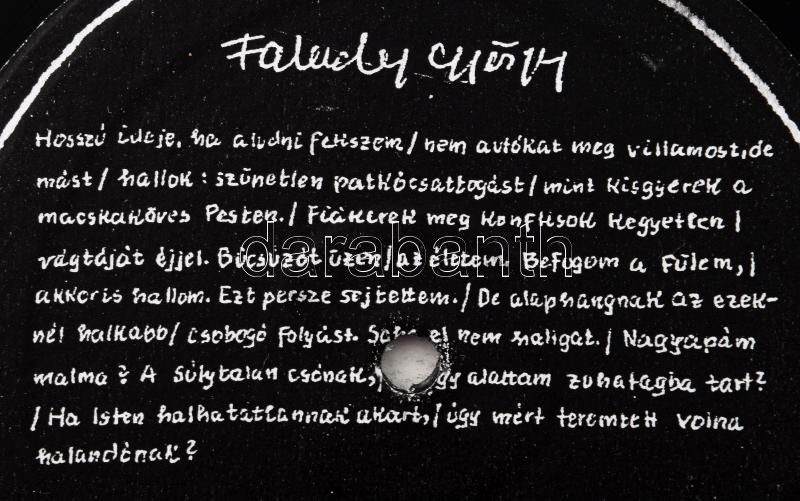 Faludy György
Hosszú ideje, ha aludni fekszem / nem autókat meg villamost, de
mást / hallok: szűnetlen patkócsattogást / mint kisgyerek a
macskaköves Pesten. / Fiákerek meg konflisok kegyetlen /
vágtáját éjjel. Búcsúzót üzen / az életem. Befogom a fülem, /
akkor is hallom. Ezt persze sejtettem. / De alaphangnak az ezek-
nél halkabb / csobogó folyást. Soha el nem hallgat. / Nagyapám
malma? A súlytalan csónak, / gy alattam zuhatagba tart?
/ Ha Isten halhatatlannak akart, / úgy mért teremtett volna
halandónak?
darabanth